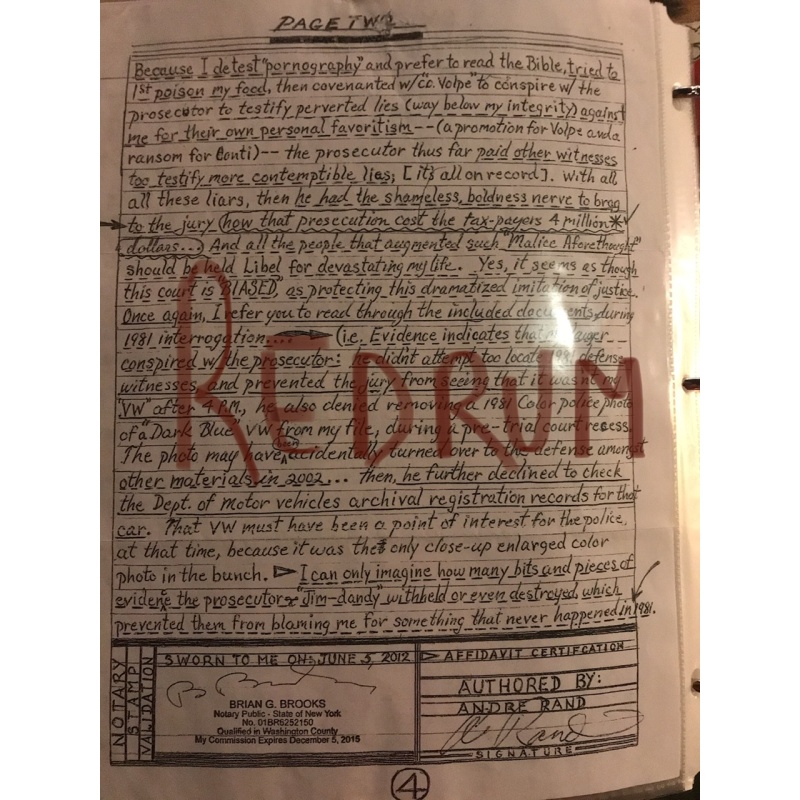 PAGE TWO
Because I detest "pornography" and prefer to read the Bible, tried to
1st poison my food, then covenanted w/"Co. Volpe" to conspire w/ the
prosecutor to testify perverted lies (way below my integrity) against
me for their own personal favoritism -- (a promotion for Volpe and a
ransom for Conti) -- the prosecutor thus far paid other witnesses
too testify more contemptible lies, [it's all on record]. With all
all these liars, then he had the shameless, boldness nerve to brag
to the jury (how that prosecution cost the tax-payers 4 million
dollars...) And all the people that augmented such "Malice Aforethought"
should be held Libel for devastating my life. Yes, it seems as though
this court is "BIASED", as protecting this dramatized imitation of justice.
Once again, I refer you to read through the included documents, during
1981 interrogation.... (i.e. Evidence indicates that
conspired w/ the prosecutor: he didn't attempt too locate 1981 defense
witnesses, and prevented the jury from seeing that it wasn't my
"VW" after 4 P.M., he also denied removing a 1981 Color police photo
of a "Dark Blue" VW from my file, during a pre-trial court recess.
The photo may have been accidentally turned over to the defense amongst
other materials in 2002... then, he further declined to check
the Dept. of Motor vehicles archival registration records for that
car. That VW must have been a point of interest for the police,
at that time, because it was the only close-up enlarged color
photo in the bunch. I can only imagine how many bits and pieces of
evidene the prosecutor "Jim-dandy" withheld or even destroyed, which
prevented them from blaming me for something that never happened in 1981.
REDRUM
NOTARY
STAMP
VALIDATION
SWORN TO ME ON: JUNE 5, 2012
BRIAN G. BROOKS
Notary Public - State of New York
No. 01BR6252150
Qualified in Washington County
My Commission Expires December 5, 2015
AFFIDAVIT CERTIFCATION
AUTHORED BY:
ANDRE RAND
SIGNATURE
4